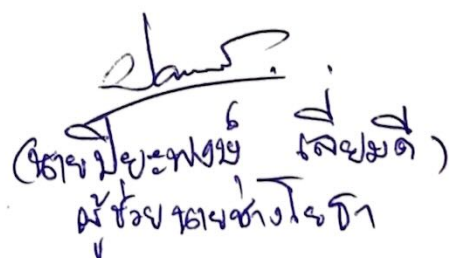 (นายปิยะพงษ์ เลี่ยมดี)
ผู้ช่วยนายช่างโยธา